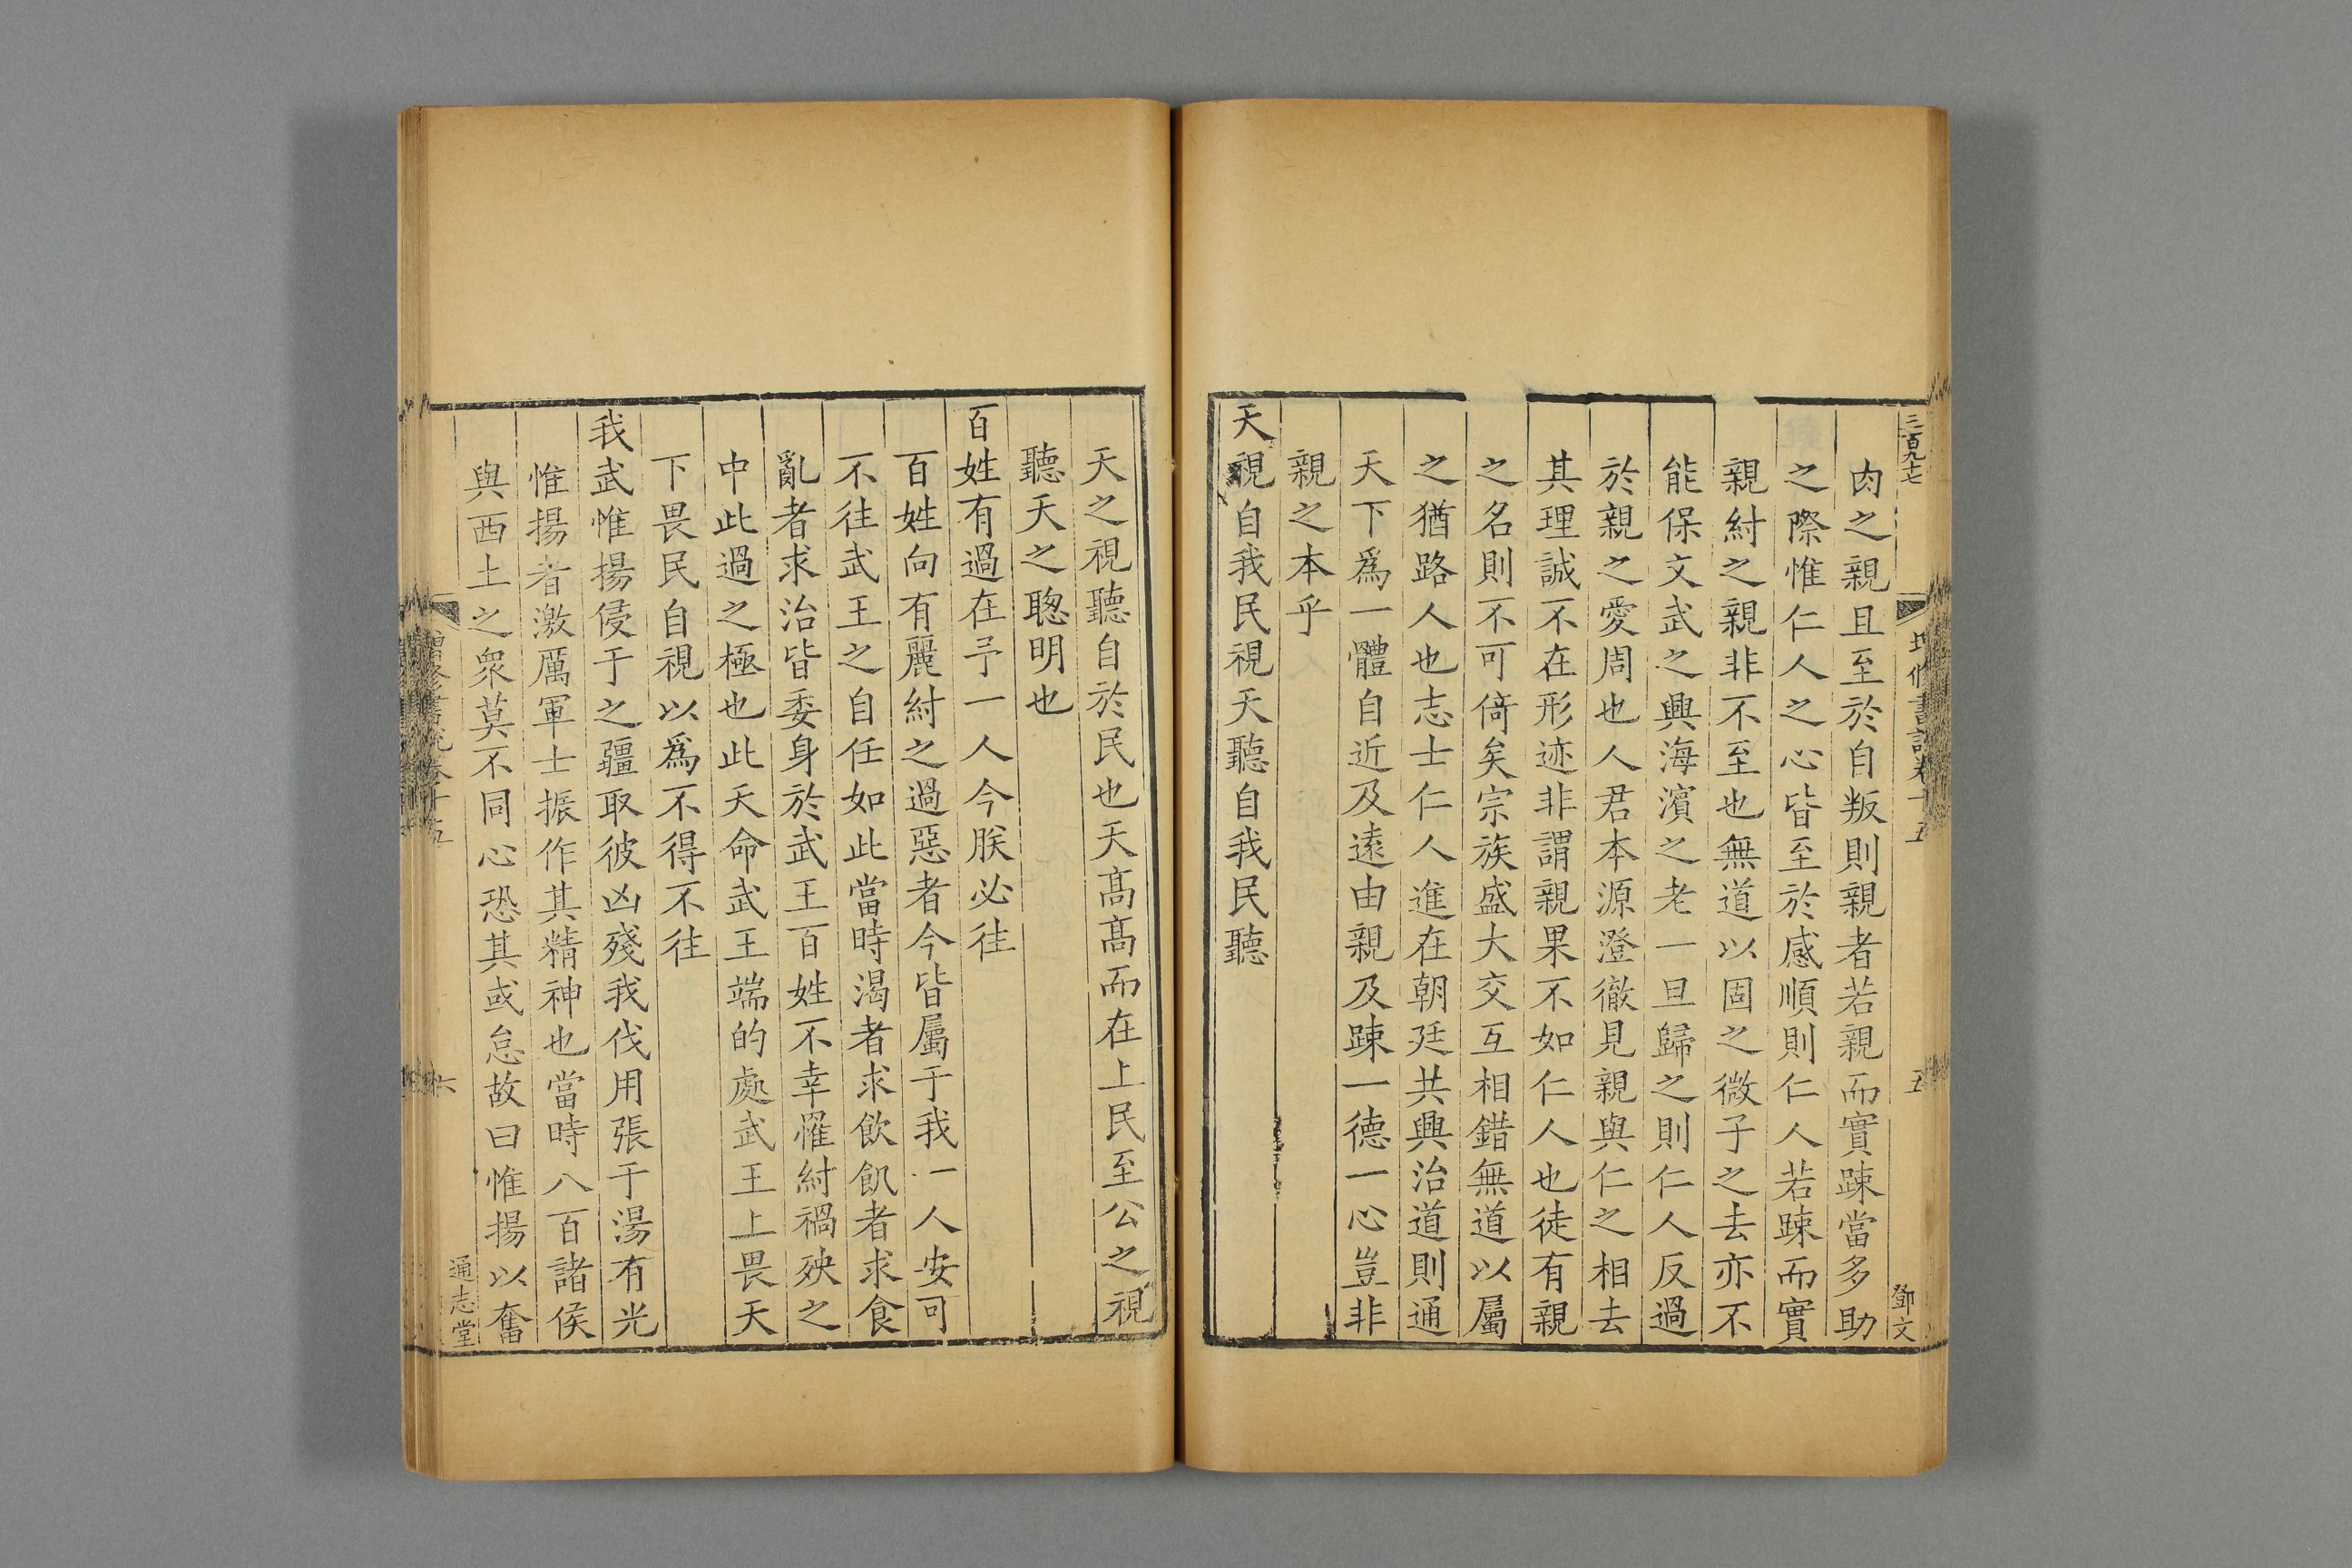 三百九十七
增修書說卷十五
五
鄧文
肉之親且至於自叛則親者若親而實踈當多助
之際惟仁人之心皆至於感順則仁人若踈而實
親紂之親非不至也無道以固之微子之去亦不
能保文武之興海濱之老一旦歸之則仁人反過
於親之愛周也人君本源澄徹見親與仁之相去
其理誠不在形迹非謂親果不如仁人也徒有親
之名則不可倚矣宗族盛大交互相錯無道以屬
之猶路人也志士仁人進在朝廷共興治道則通
天下爲一體自近及遠由親及踈一德一心豈非
親之本乎
天視自我民視天聽自我民聽
天之視聽自於民也天高高而在上民至公之視
聽天之聦明也
百姓有過在予一人今朕必徃
百姓向有麗紂之過惡者今皆屬于我一人安可
不徃武王之自任如此當時渴者求飲飢者求食
亂者求治皆委身於武王百姓不幸罹紂禍殃之
中此過之極也此天命武王端的處武王上畏天
下畏民自視以爲不得不徃
我武惟揚侵于之疆取彼凶殘我伐用張于湯有光
惟揚者激厲軍士振作其精神也當時八百諸侯
與西土之衆莫不同心恐其或怠故曰惟揚以奮
增修書說卷十五
六
通志堂